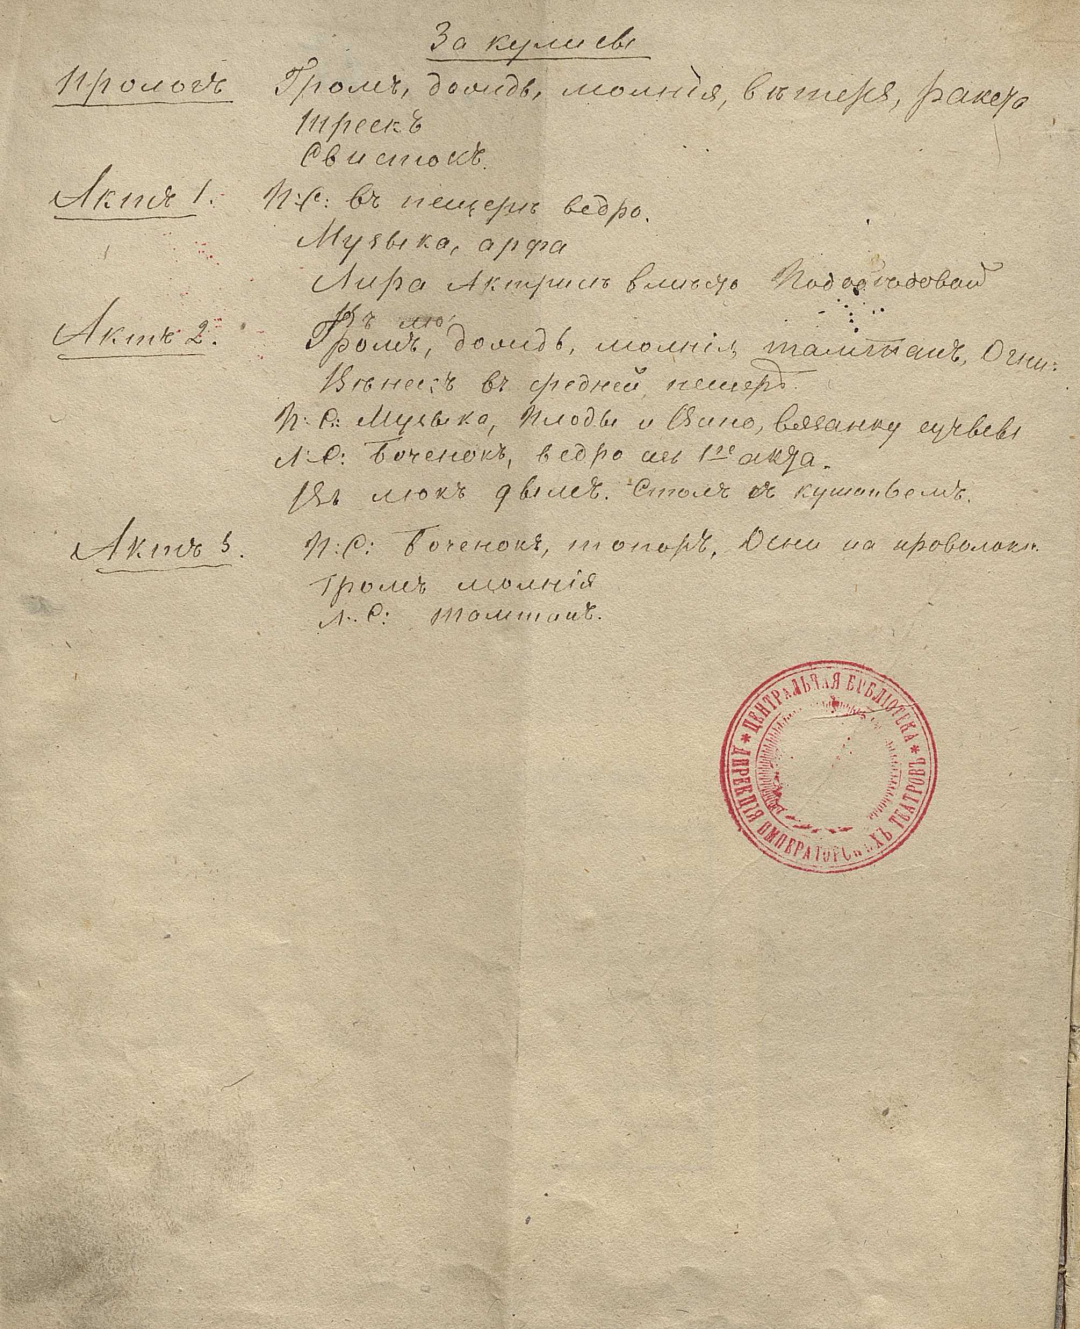 За кулисы
Прологъ Громъ, дождь, молнія, вѣтеръ, ракета
Трескъ
Свистокъ.
Актъ 1. П:С: въ пещеръ ведро.
Музыка, арфа
Лира Актрисѣ вмѣсто
Въ лю
Актъ 2. Громъ, дождь, молнія, тамтамъ, Огни:
въ средней пещерѣ.
П:С: Музыка, Плоды и Вино, вязанку сучьевъ
Л:С: Боченокъ, ведро изъ 1го акта.
Въ люкъ дымъ. Столъ съ кушаньемъ.
Актъ 3. П:С: Боченокъ, топоръ, Огни на проволокѣ.
Громъ молнія
Л:С: тамтамъ.
ЦЕНТРАЛЬНАЯ БИБЛІОТЕКА * ДИРЕКЦІЯ ИМПЕРАТОРСКИХЪ ТЕАТРОВЪ *